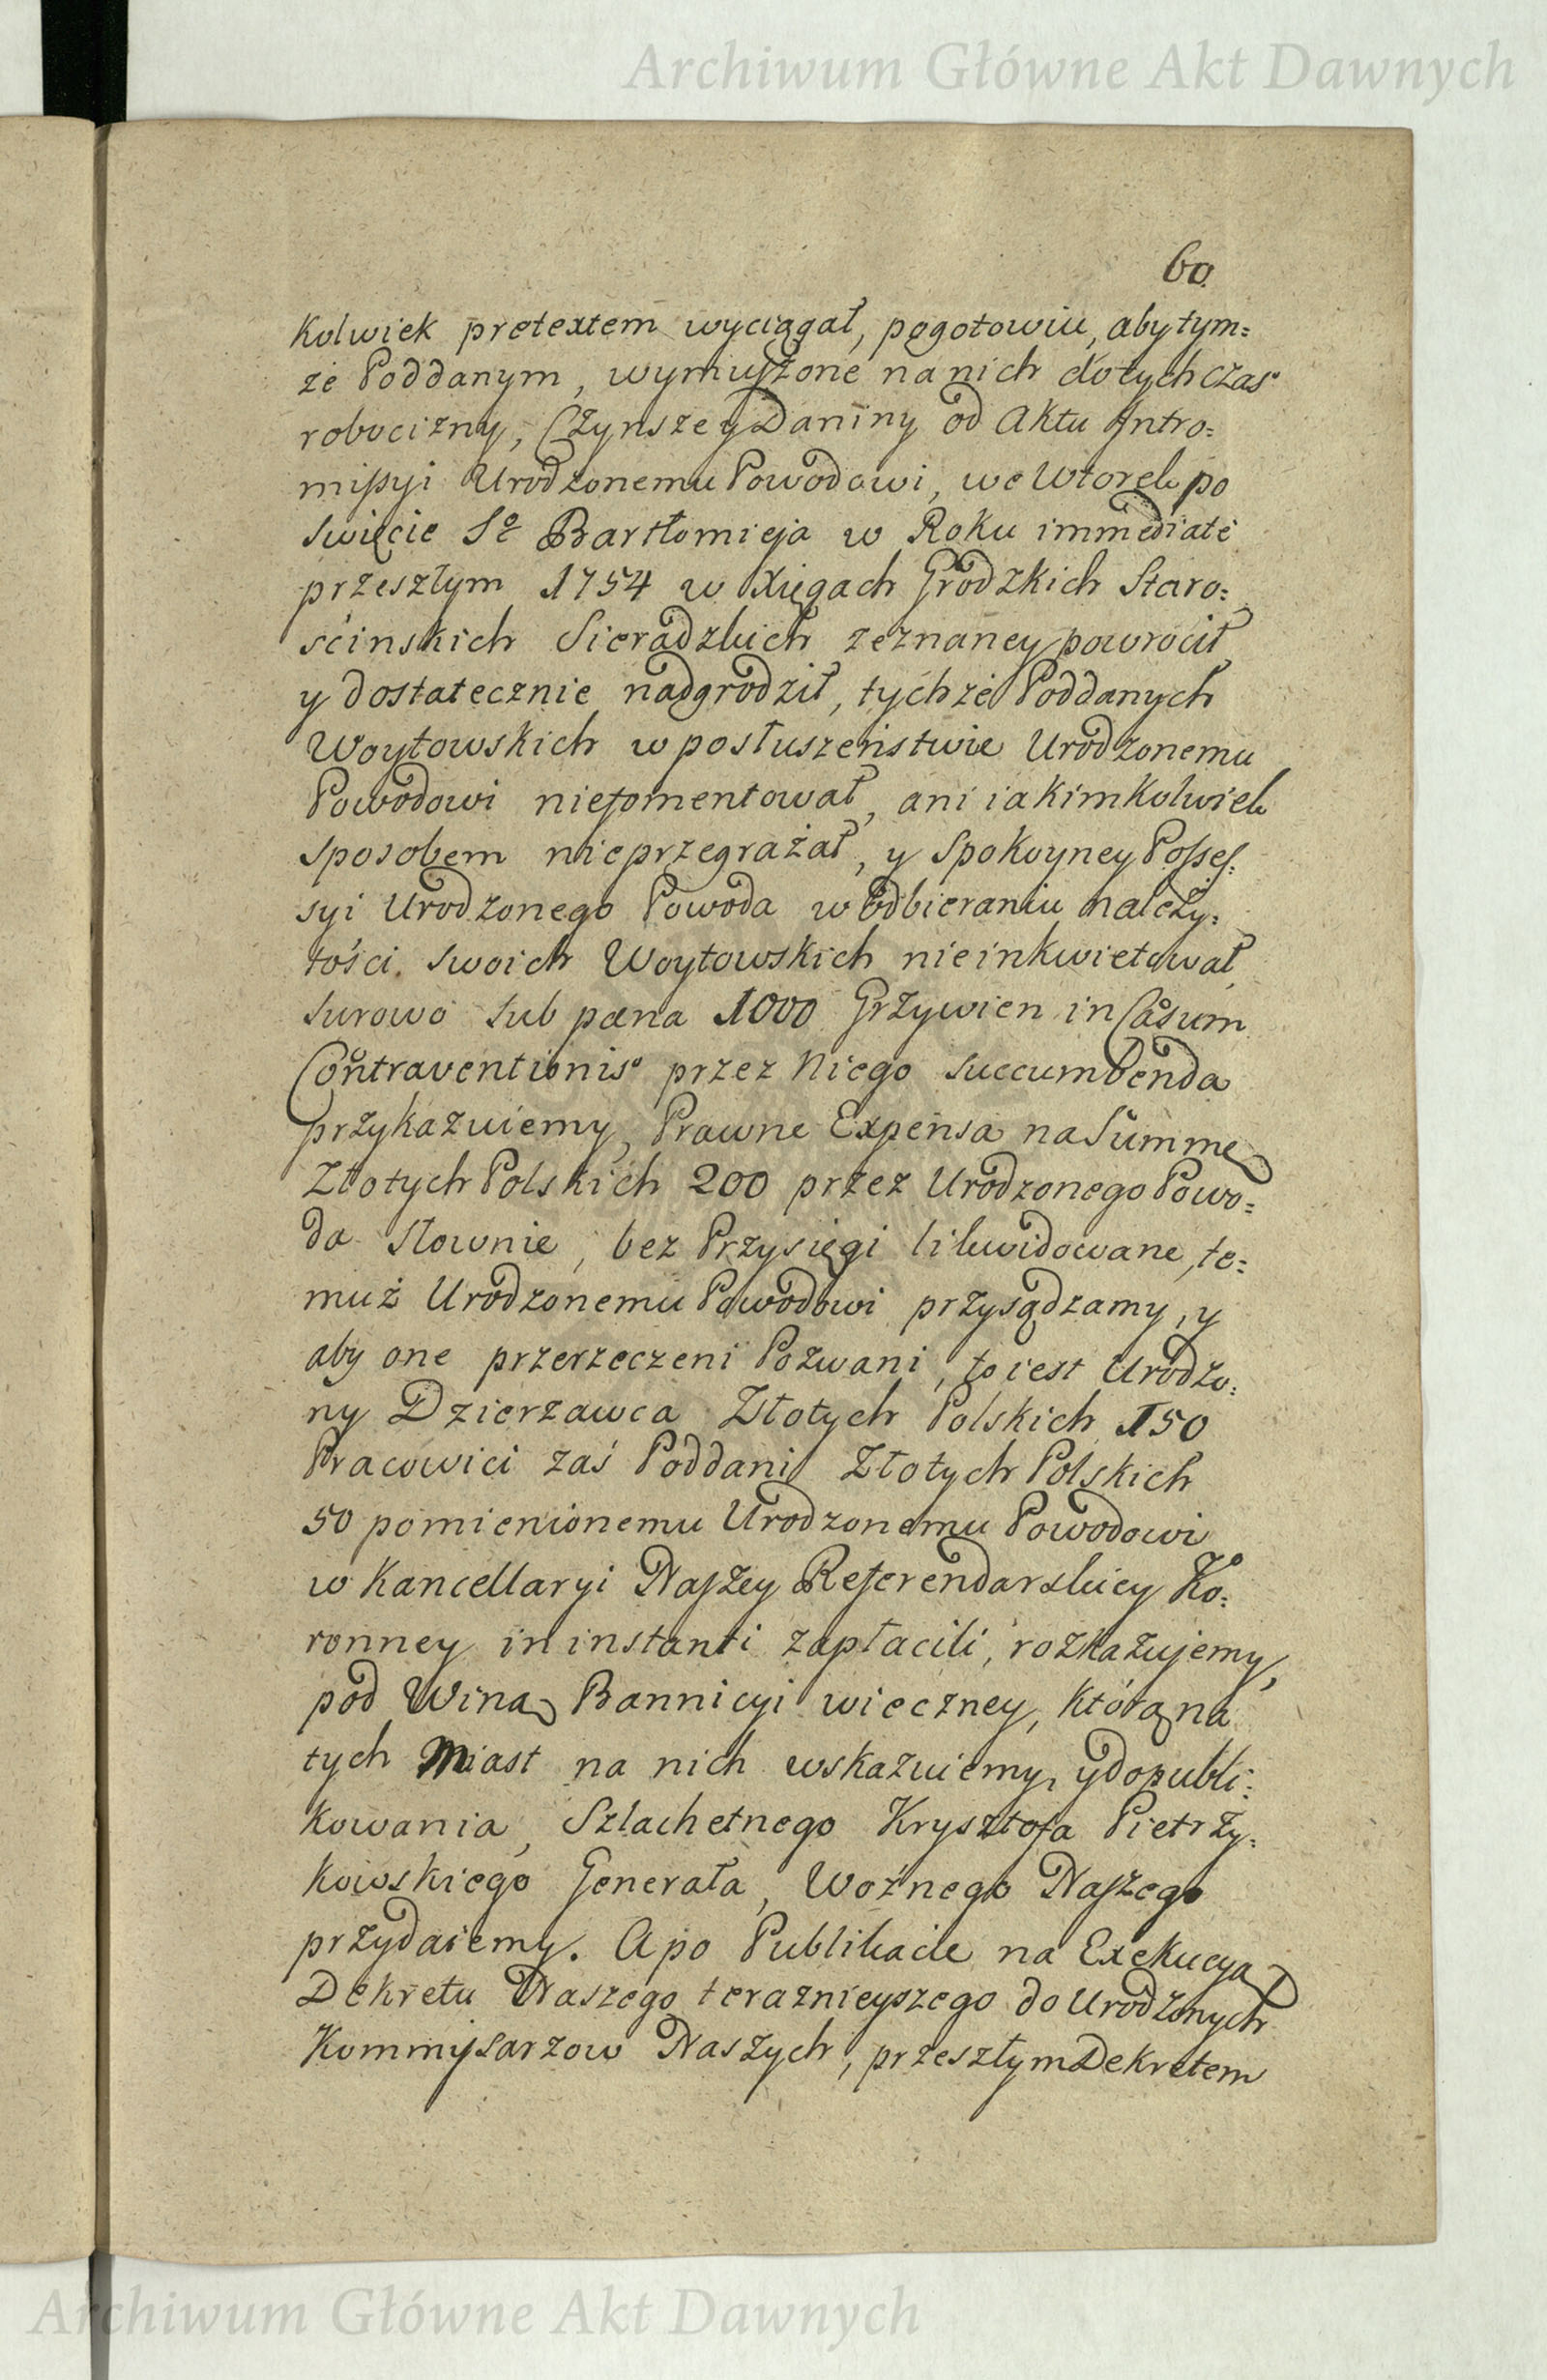 Archiwum Główne Akt Dawnych
60.
kolwiek pretextem wyciągał, pogotowiu, aby tym=
że Poddanym, wymuszone na nich dotychczas
robocizny, Czynsze y Daniny od Aktu Intro=
missyi Urodzonemu Powodowi, we Wtorek po
Swięcie So Bartłomieja w Roku immediate
przeszłym 1754 w Xięgach Grodzkich Staro=
ścinskich Sieradzkich zeznaney powrocił
y dostatecznie nadgrodził, tychże Poddanych
Woytowskich w posłuszeństwie Urodzonemu
Powodowi niefomentował, ani iakimkolwiek
sposobem nieprzegrażał, y Spokoyney Posses=
syi Urodzonego Powoda w odbieraniu należy=
tości swoich Woytowskich nieinkwietował,
surowo sub pæna 1000 Grzywien in Casum
Contraventionis przez Niego succumbenda
przykazuiemy, Prawne Expensa na Summę
Złotych Polskich 200 przez Urodzonego Powo=
da słownie, bez Przysięgi likwidowane, te=
muż Urodzonemu Powodowi przysądzamy, y
aby one przerzeczeni Pozwani, to iest Urodzo=
ny Dzierzawca Złotych Polskich 150
Pracowici zaś Poddani Złotych Polskich
50 pomienionemu Urodzonemu Powodowi
w Kancellaryi Naszey Referendarskiey Ko=
ronney in instanti zapłacili, rozkazujemy,
pod Winą Bannicyi wieczney, którą na
tych Miast na nich wskazuiemy, y do publi=
kowania, Szlachetnego Krysztofa Pietrzy=
kowskiego Generała, Woźnego Naszego
przydaiemy. A po Publikacie na Exekucyą
Dekretu Naszego teraznieyszego do Urodzonych
Kommysarzow Naszych, przeszłym Dekretem
Archiwum Główne Akt Dawnych